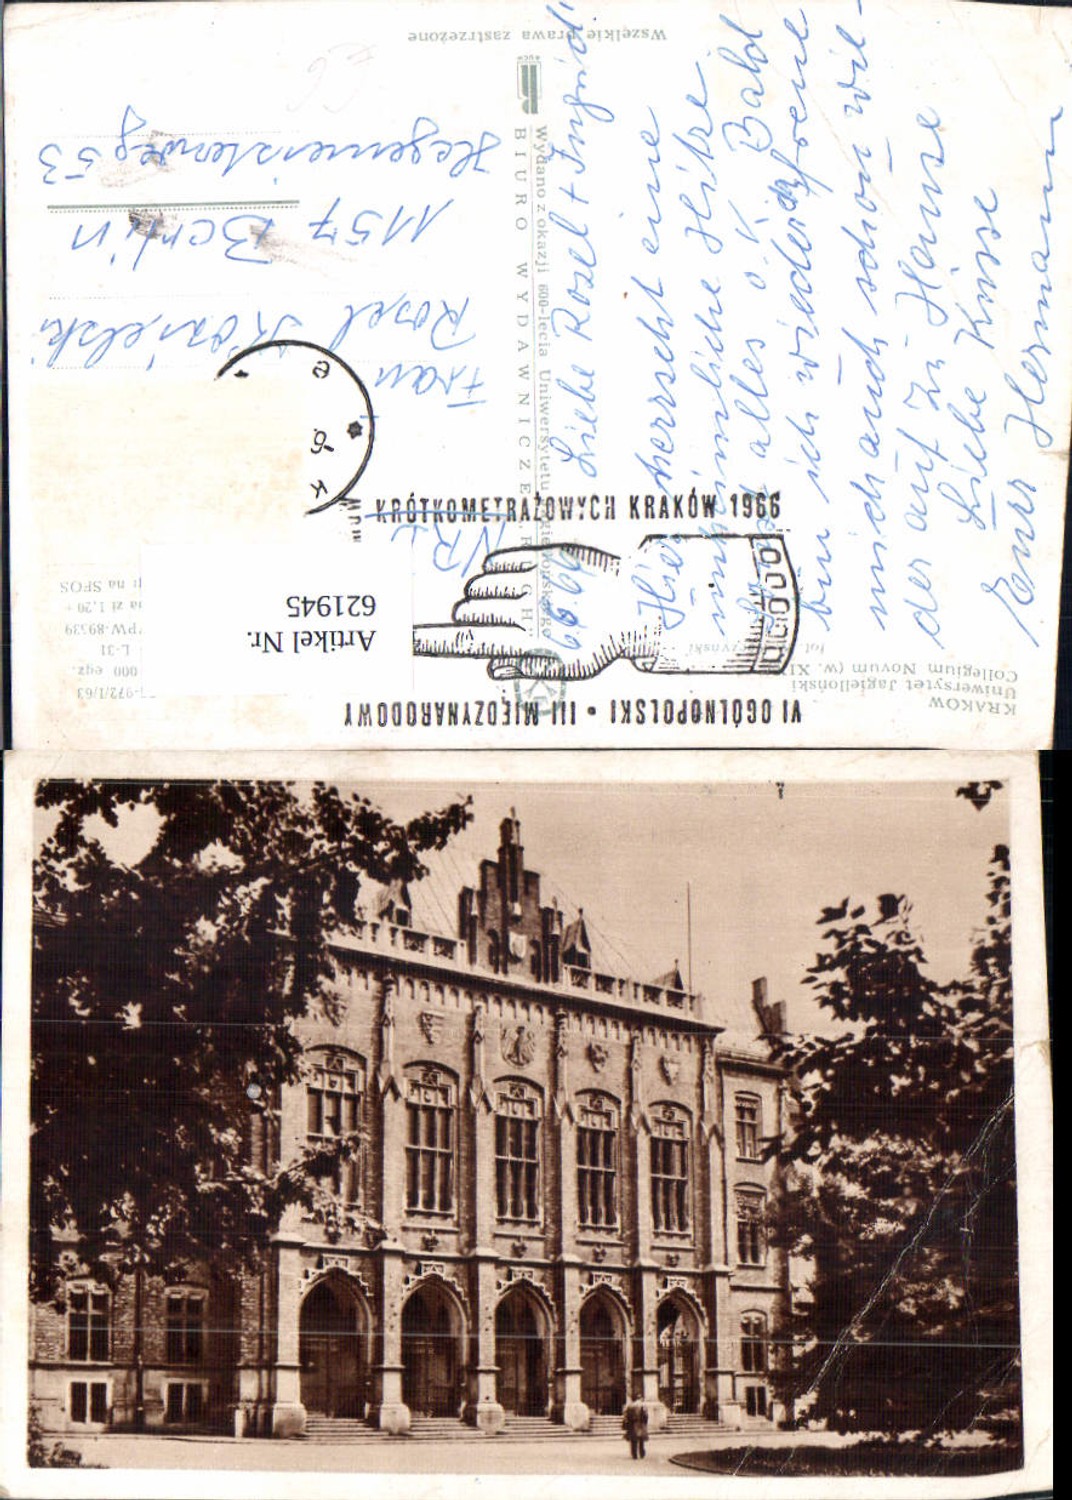 KRAKÓW
Uniwersytet Jagielloński
Collegium Novum (w. XIX)
fot.
VI OGÓLNOPOLSKI • III MIĘDZYNARODOWY
KRÓTKOMETRAŻOWYCH KRAKÓW 1966
Artikel Nr.
621945
Wydano z okazji 600-lecia Uniwersytetu Jagiellońskiego
BIURO WYDAWNICZE „RUCH"
RUCH
Wszelkie prawa zastrzeżone
-972/I/63
000 egz.
L-31
PW-89539
na zł 1,20 +
na SFOS
6.6.66
Liebe Rosel + Ingrid!
Hier herrscht eine
unheimliche Hitze
sonst alles o.! Bald
bin ich wieder da, freue
mich auch schon wie-
der auf zu Hause
Liebe Küsse
Euer Hermann
NRD
Frau
Rosel Kosielski
1157 Berlin
Hegemeisterweg 53